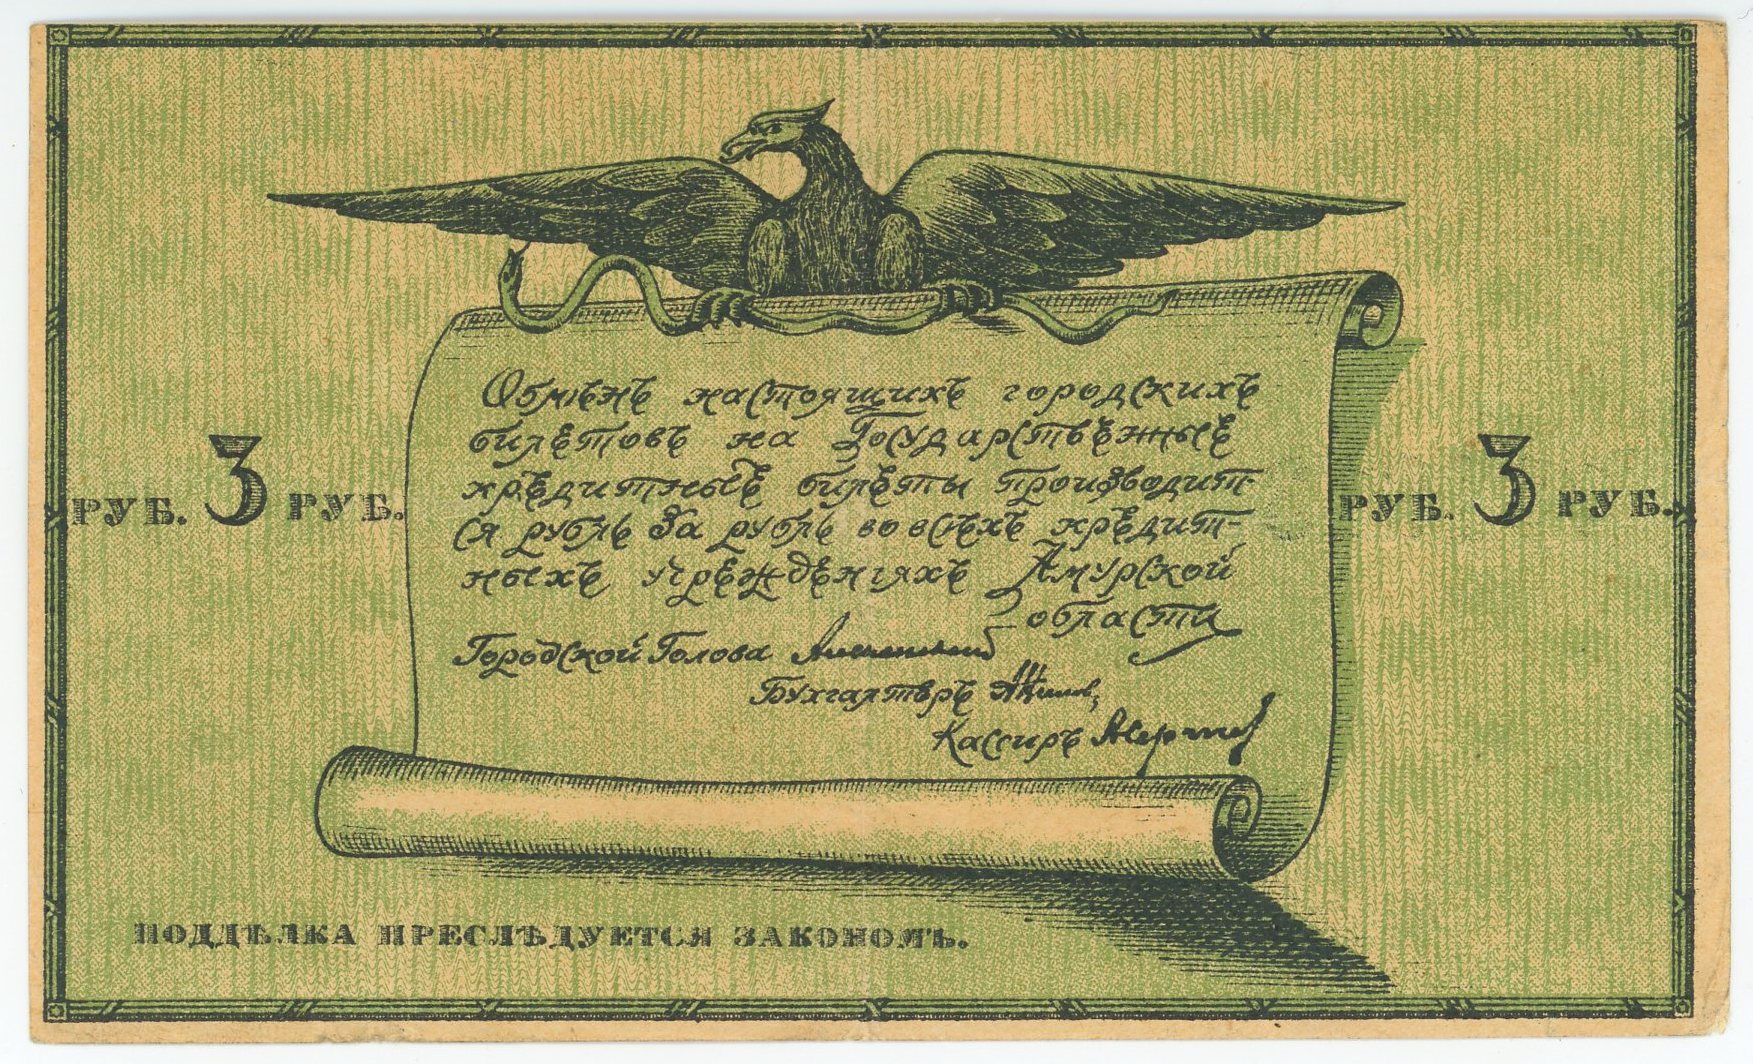 Обмѣнъ настоящихъ городскихъ
билетовъ на Государственные
кредитные билеты производит-
ся рубль за рубль во всѣхъ кредит-
ныхъ учрежденіяхъ Амурской
области
РУБ. 3 РУБ.
РУБ. 3 РУБ.
Городской Голова
Бухгалтеръ
Кассиръ
ПОДДѢЛКА ПРЕСЛѢДУЕТСЯ ЗАКОНОМЪ.